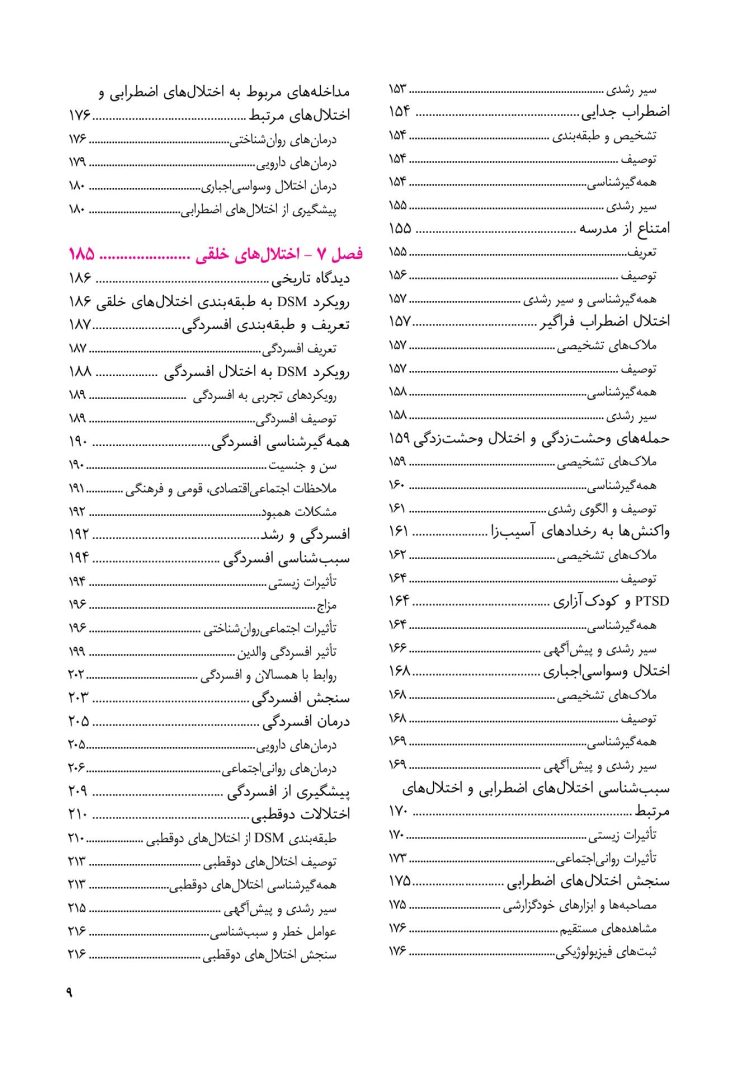 سیر رشدی ..... ۱۵۳
اضطراب جدایی ..... ۱۵۴
تشخیص و طبقه‌بندی ..... ۱۵۴
توصیف ..... ۱۵۴
همه‌گیرشناسی ..... ۱۵۴
سیر رشدی ..... ۱۵۵
امتناع از مدرسه ..... ۱۵۵
تعریف ..... ۱۵۵
توصیف ..... ۱۵۶
همه‌گیرشناسی و سیر رشدی ..... ۱۵۷
اختلال اضطراب فراگیر ..... ۱۵۷
ملاک‌های تشخیصی ..... ۱۵۷
توصیف ..... ۱۵۷
همه‌گیرشناسی ..... ۱۵۸
سیر رشدی ..... ۱۵۸
حمله‌های وحشت‌زدگی و اختلال وحشت‌زدگی ۱۵۹
ملاک‌های تشخیصی ..... ۱۵۹
همه‌گیرشناسی ..... ۱۶۰
توصیف و الگوی رشدی ..... ۱۶۱
واکنش‌ها به رخدادهای آسیب‌زا ..... ۱۶۱
ملاک‌های تشخیصی ..... ۱۶۲
توصیف ..... ۱۶۴
PTSD و کودک‌آزاری ..... ۱۶۴
همه‌گیرشناسی ..... ۱۶۴
سیر رشدی و پیش‌آگهی ..... ۱۶۶
اختلال وسواسی‌اجباری ..... ۱۶۸
ملاک‌های تشخیصی ..... ۱۶۸
توصیف ..... ۱۶۸
همه‌گیرشناسی ..... ۱۶۹
سیر رشدی و پیش‌آگهی ..... ۱۶۹
سبب‌شناسی اختلال‌های اضطرابی و اختلال‌های
مرتبط ..... ۱۷۰
تأثیرات زیستی ..... ۱۷۰
تأثیرات روانی‌اجتماعی ..... ۱۷۳
سنجش اختلال‌های اضطرابی ..... ۱۷۵
مصاحبه‌ها و ابزارهای خودگزارشی ..... ۱۷۵
مشاهده‌های مستقیم ..... ۱۷۶
ثبت‌های فیزیولوژیکی ..... ۱۷۶
مداخله‌های مربوط به اختلال‌های اضطرابی و
اختلال‌های مرتبط ..... ۱۷۶
درمان‌های روان‌شناختی ..... ۱۷۶
درمان‌های دارویی ..... ۱۷۹
درمان اختلال وسواسی‌اجباری ..... ۱۸۰
پیشگیری از اختلال‌های اضطرابی ..... ۱۸۰
فصل ۷ – اختلال‌های خلقی ..... ۱۸۵
دیدگاه تاریخی ..... ۱۸۶
رویکرد DSM به طبقه‌بندی اختلال‌های خلقی ۱۸۶
تعریف و طبقه‌بندی افسردگی ..... ۱۸۷
تعریف افسردگی ..... ۱۸۷
رویکرد DSM به اختلال افسردگی ..... ۱۸۸
رویکردهای تجربی به افسردگی ..... ۱۸۹
توصیف افسردگی ..... ۱۸۹
همه‌گیرشناسی افسردگی ..... ۱۹۰
سن و جنسیت ..... ۱۹۰
ملاحظات اجتماعی‌اقتصادی، قومی و فرهنگی ..... ۱۹۱
مشکلات همبود ..... ۱۹۲
افسردگی و رشد ..... ۱۹۲
سبب‌شناسی افسردگی ..... ۱۹۴
تأثیرات زیستی ..... ۱۹۴
مزاج ..... ۱۹۶
تأثیرات اجتماعی‌روان‌شناختی ..... ۱۹۶
تأثیر افسردگی والدین ..... ۱۹۹
روابط با همسالان و افسردگی ..... ۲۰۲
سنجش افسردگی ..... ۲۰۳
درمان افسردگی ..... ۲۰۵
درمان‌های دارویی ..... ۲۰۵
درمان‌های روانی‌اجتماعی ..... ۲۰۶
پیشگیری از افسردگی ..... ۲۰۹
اختلالات دوقطبی ..... ۲۱۰
طبقه‌بندی DSM از اختلال‌های دوقطبی ..... ۲۱۰
توصیف اختلال‌های دوقطبی ..... ۲۱۳
همه‌گیرشناسی اختلال‌های دوقطبی ..... ۲۱۳
سیر رشدی و پیش‌آگهی ..... ۲۱۵
عوامل خطر و سبب‌شناسی ..... ۲۱۶
سنجش اختلال‌های دوقطبی ..... ۲۱۶
۹